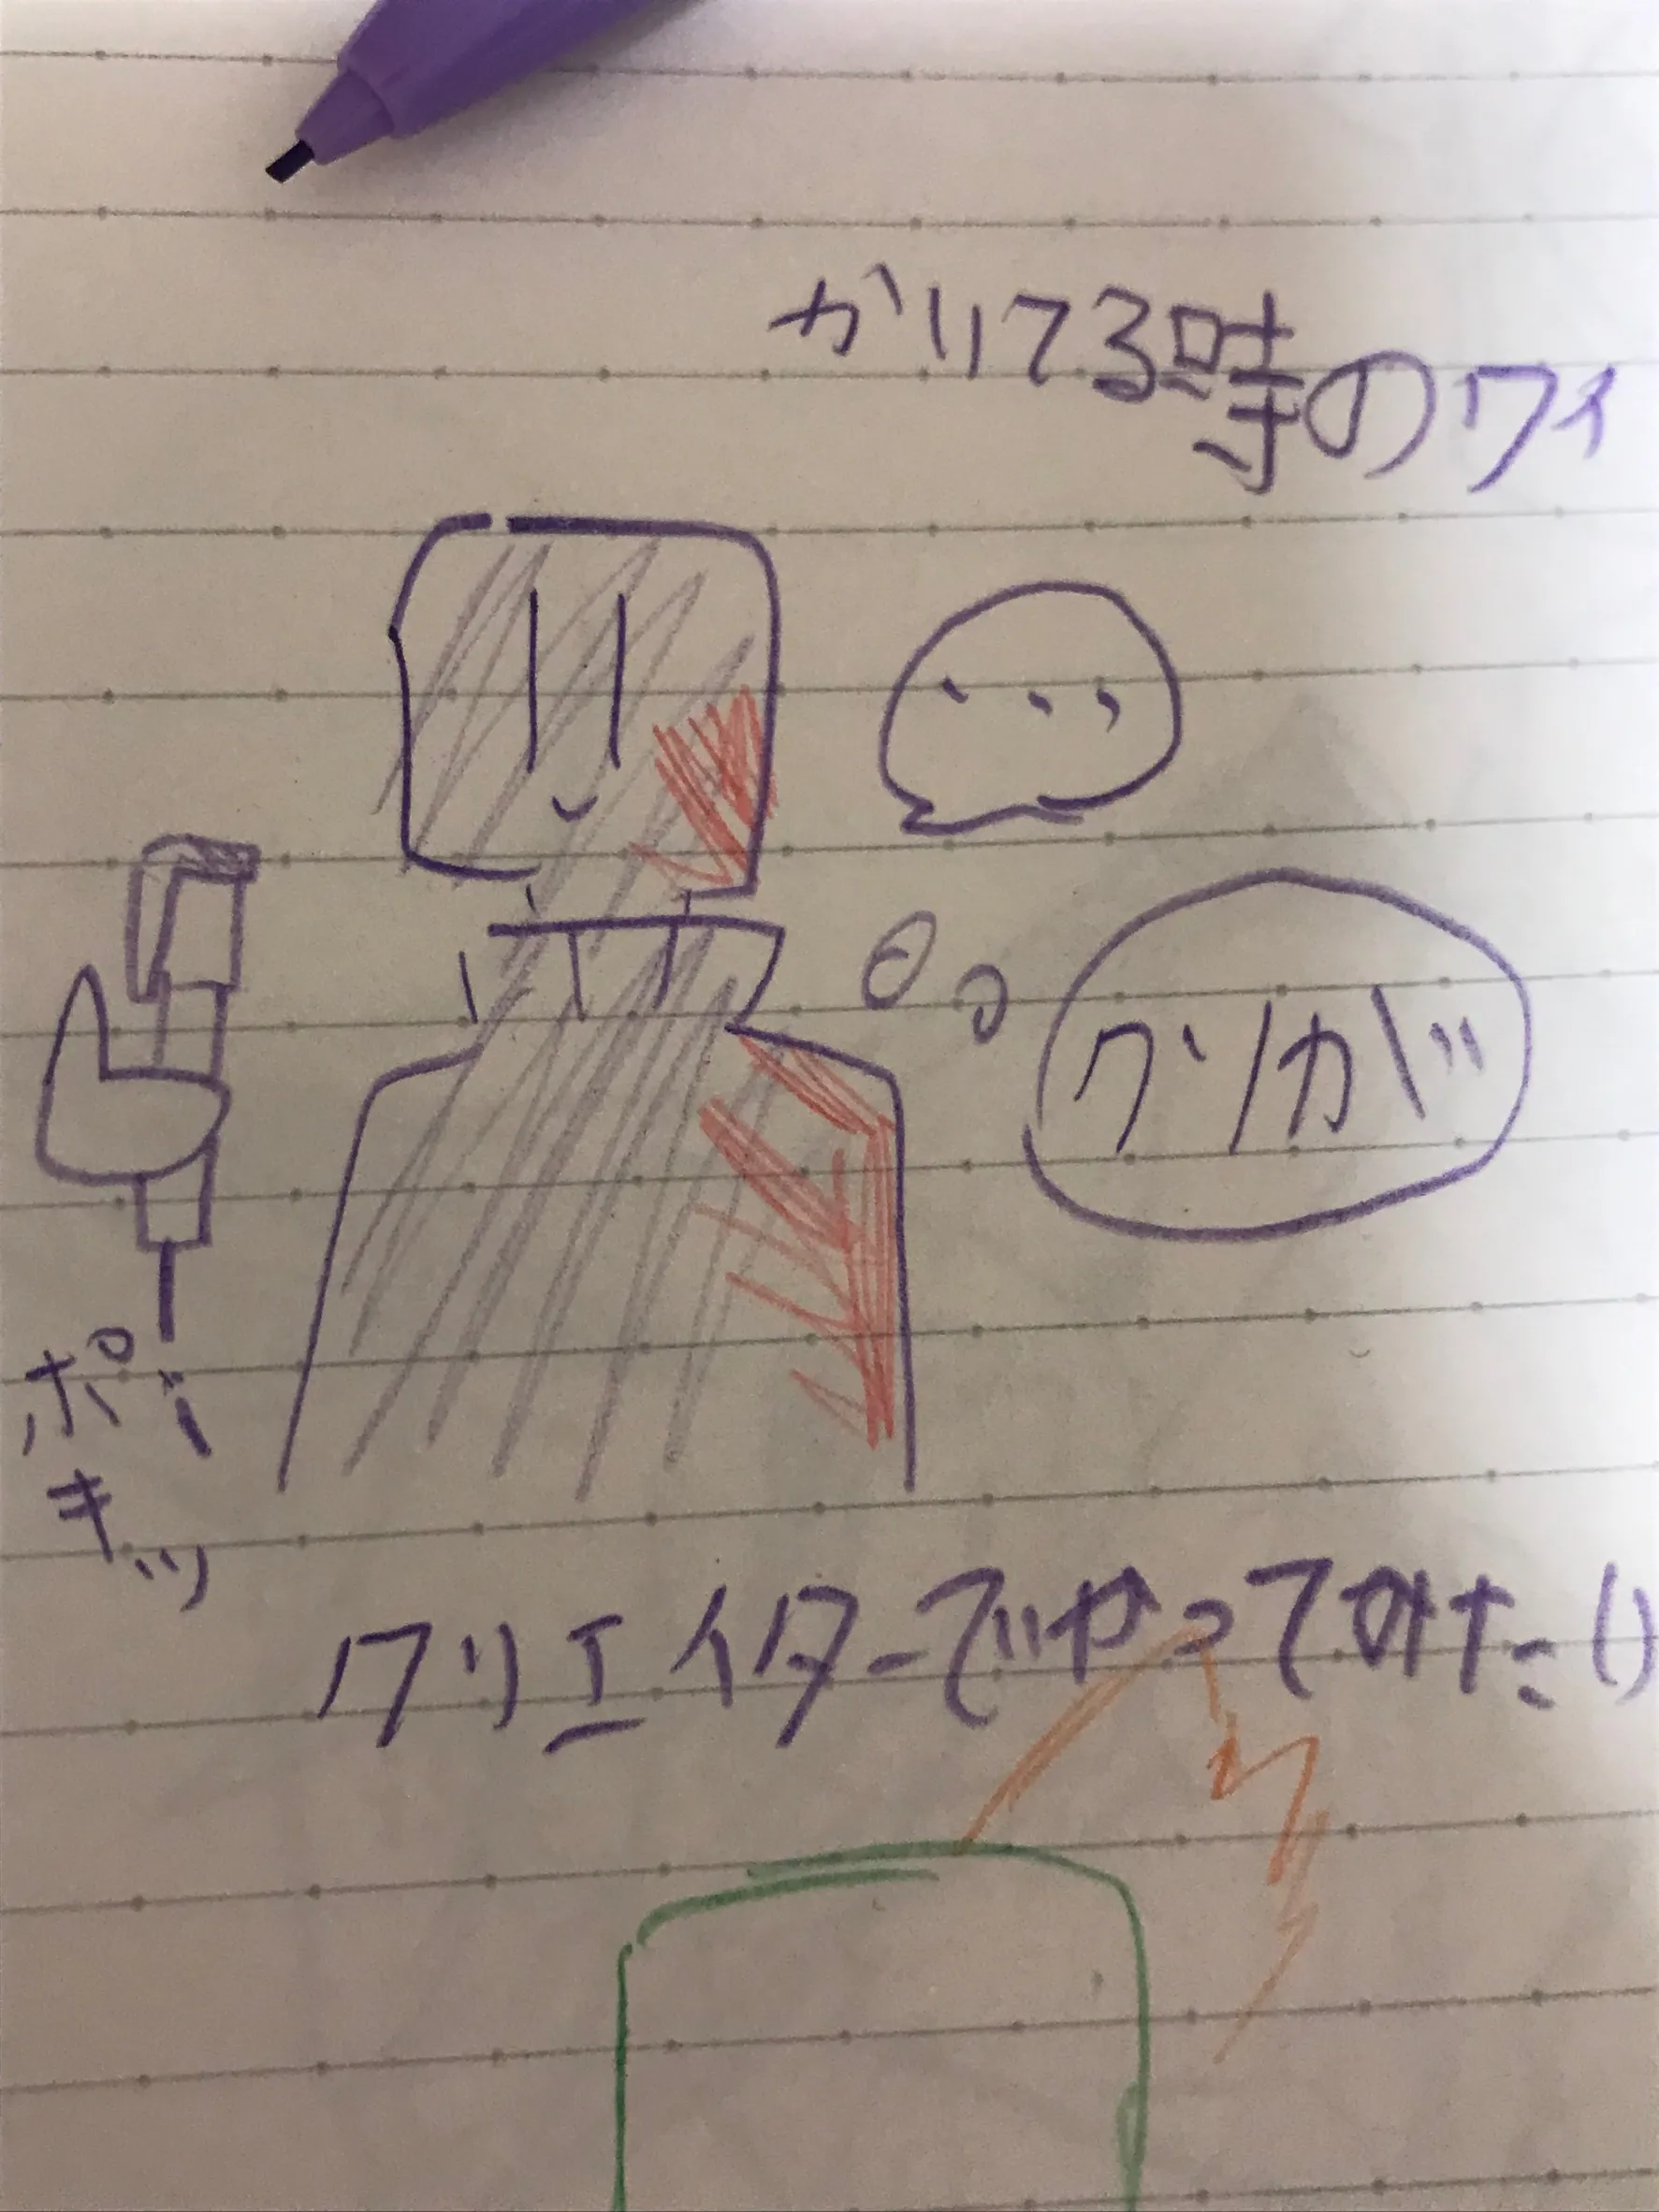 かいてる時のワイ
・・・
クソが╲゛
ポキッ
クリエイターでやってみたい